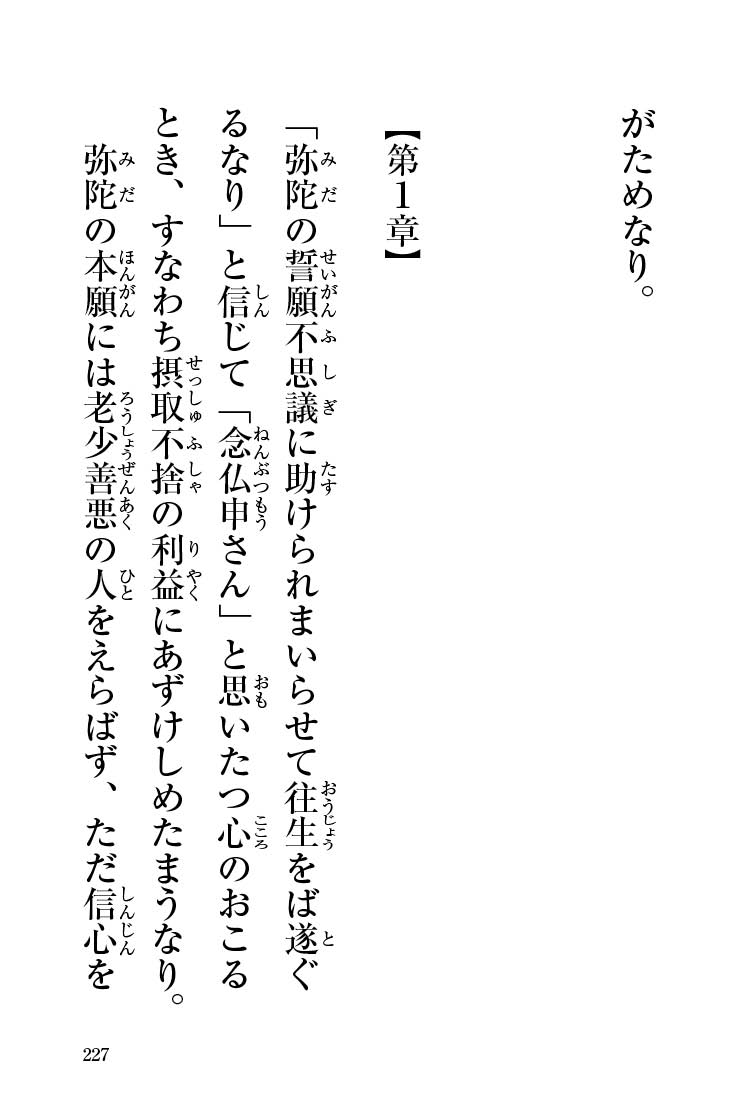 がためなり。
【第１章】
「弥陀の誓願不思議に助けられまいらせて往生をば遂ぐ
るなり」と信じて「念仏申さん」と思いたつ心のおこる
とき、すなわち摂取不捨の利益にあずけしめたまうなり。
弥陀の本願には老少善悪の人をえらばず、ただ信心を
227